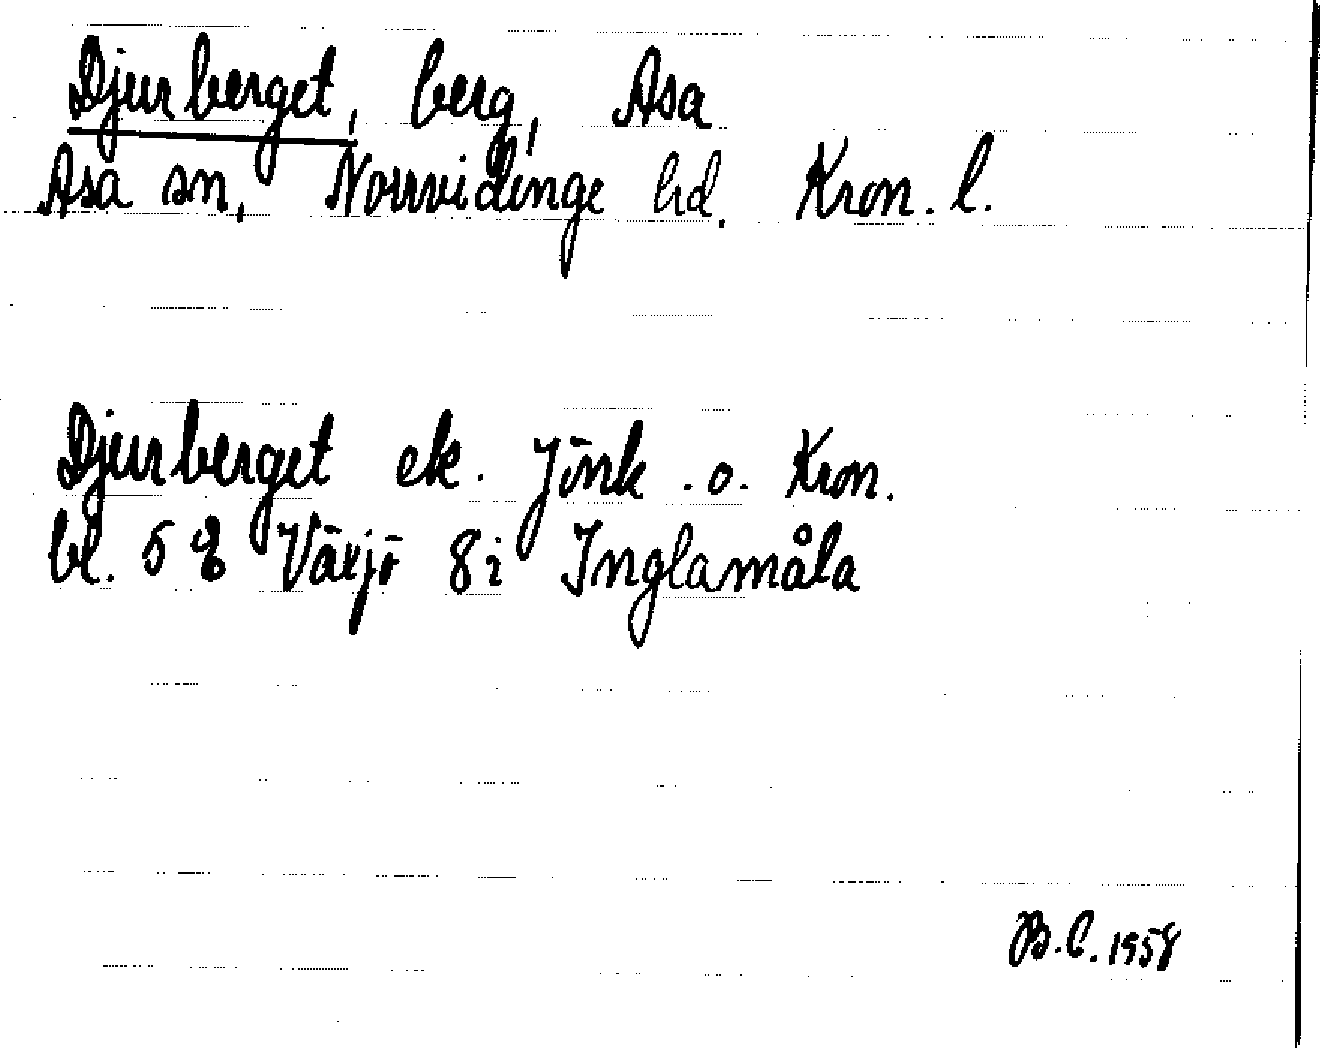 Djurberget, berg, Asa
Asa sn, Norrvidinge hd. Kron. l.
Djurberget ek. Jönk. o. Kron.
bl. 5 8 Växjö 8 i Inglamåla
B.C. 1958